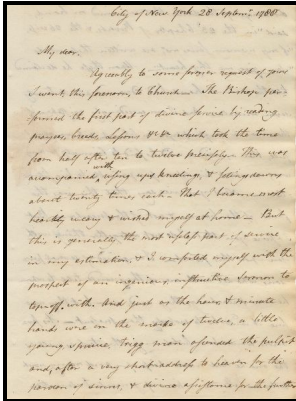 City of New York 28 Septem.r 1788
My dear.
Agreeably to some former request of yours
I went, this forenoon, to Church – The Bishop per-
formed the first part of divine service by reading
prayers, creeds, Lessons &c &c which took the time
from half after ten to twelve precisely – This was
accompanied, with rising ups & kneelings, & sittings downs
about twenty times each – That I became most
heartily weary & wished myself at home – But
this is generally, the most useless part of service
in my estimation, & I comforted myself with the
prospect of an ingenious, instructive Sermon to
top off with. And just as the hour & minute
hand were on the marks of twelve, a little
young, spruce, trigg man ascended the pulpit
and, after a very short address to heaven for the
pardon of sinns, & divine assistance for the further